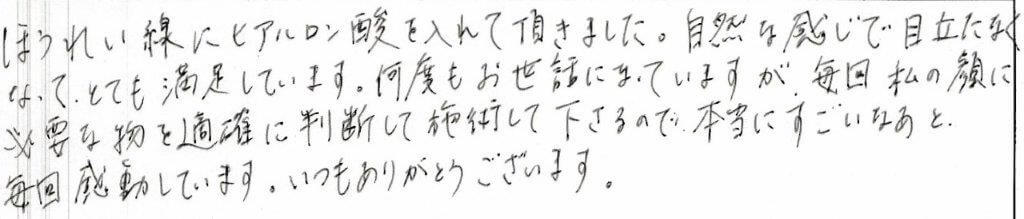 ほうれい線にヒアルロン酸を入れて頂きました。自然な感じで目立たなく
なって、とても満足しています。何度もお世話になっていますが、毎回私の顔に
必要な物を適確に判断して施術して下さるので、本当にすごいなあと、
毎回感動しています。いつもありがとうございます。